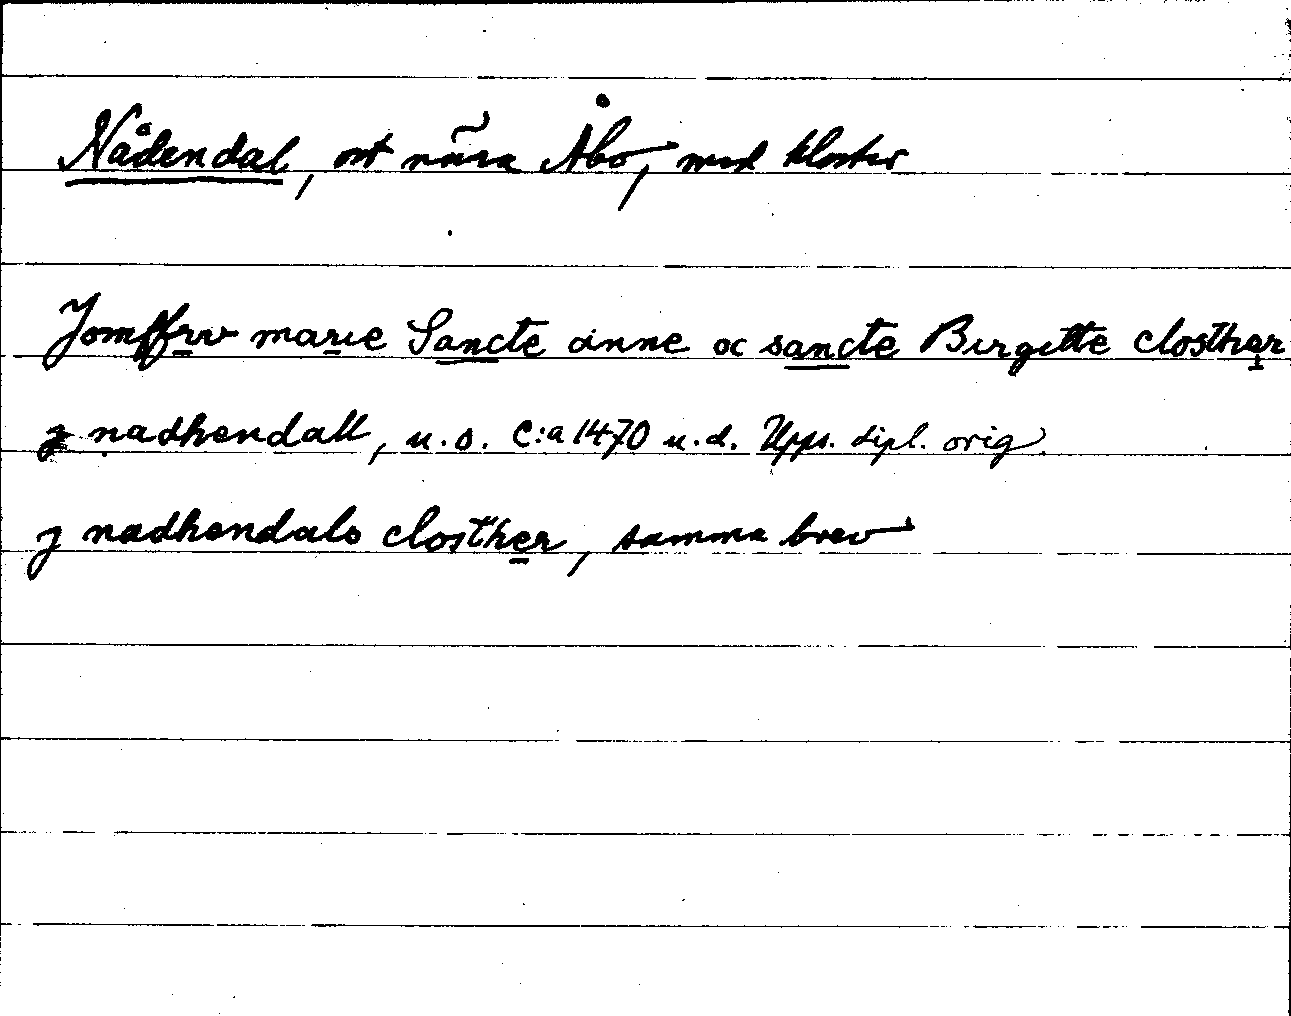 Nådendal, ort nära Åbo, med kloster
Jomffrw marie Sancte anne oc sancte Birgitte closther
j nadhendall, u.o. c:a 1470 u.d. Upps. dipl. orig.
j nadhendals closther, samma brev